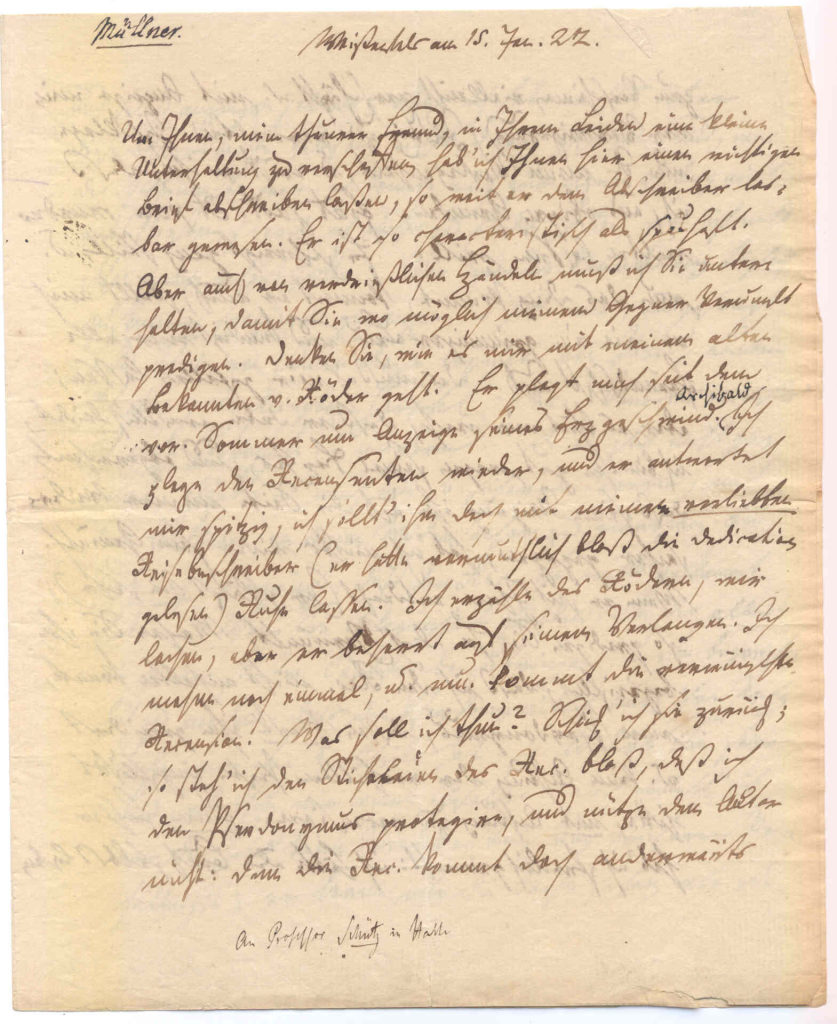 Müllner.
Weißenfels am 15. Jan. 22.
Um Ihnen, mein theurer Freund, in Ihrem Leiden eine kleine
Unterhaltung zu verschaffen hab' ich Ihnen hier einen wichtigen
Brief abschreiben laßen, so weit er dem Abschreiber les-
bar gewesen. Er ist so characteristisch als spaßhaft.
Aber auch von verdrießlichen Händeln muß ich Sie unter-
halten, damit Sie wo möglich meinem Gegner Vernunft
predigen. Denken Sie, wie es mir mit meinem alten
Bekannten v. Röder geht. Er plagt mich seit dem
Archibald
vor. Sommer um Anzeige seines Erzgeschwind. Ich
plage den Recensenten wieder, und er antwortet
mir spitzig, ich sollt' ihn doch mit meinem verliebten
Reisebeschreiber (er hatte vermuthlich bloß die Dedication
gelesen) Ruhe lassen. Ich erzähle das Rödern, wir
lachen, aber er beharrt auf seinem Verlangen. Ich
mahne noch einmal, u. nun kommt die
Recension. Was soll ich thun? Schick' ich sie zurück;
so steh' ich den Sticheleien des Rec. bloß, daß ich
den Pseudonymus protegire, und nütze dem Autor
nicht: denn die Rec. kommt doch anderwärts
An Professor Schütz in Halle